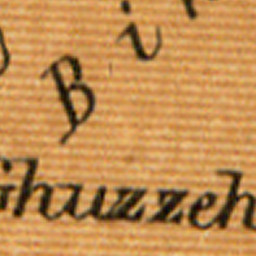 B i
Ghuzzeh